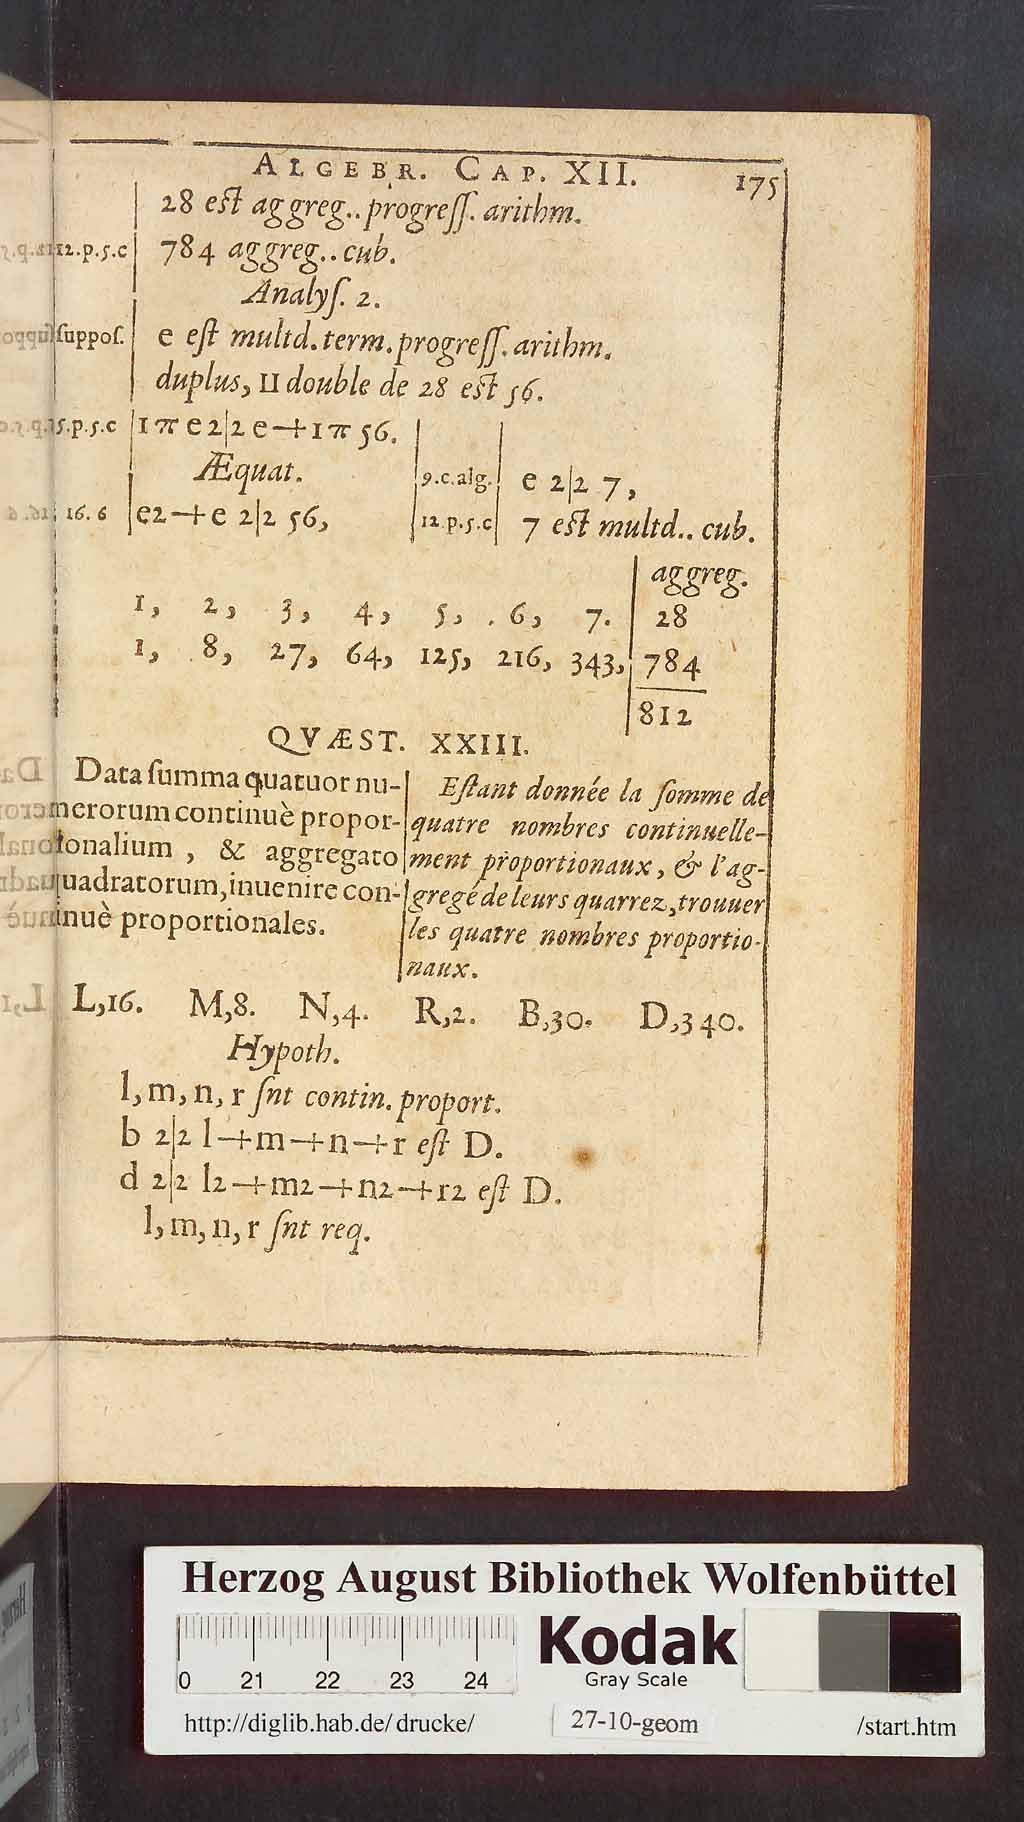 ALGEBR. CAP. XII. 175
28 est aggreg.. progreſſ. arithm.
12.p.5.c 784 aggreg.. cub.
Analyſ. 2.
ſuppoſ. e eſt multd. term. progreſſ. arithm.
duplus, II double de 28 est 56.
5.p.5.c 1 π e 2|2 e + 1 π 56.
Æquat.
9.c.alg. e 2|2 7,
16. 6 e2 + e 2|2 56,
12 p.5.c 7 est multd.. cub.
aggreg.
1, 2, 3, 4, 5, 6, 7. 28
1, 8, 27, 64, 125, 216, 343, 784
812
QVÆST. XXIII.
Data ſumma quatuor nu-
merorum continuè propor-
ionalium, & aggregato
quadratorum, inuenire con-
inuè proportionales.
Eſtant donnée la ſomme de
quatre nombres continuelle-
ment proportionaux, & l'ag-
gregé de leurs quarrez, trouuer
les quatre nombres proportio-
naux.
L,16. M,8. N,4. R,2. B,30. D,340.
Hypoth.
l, m, n, r ſnt contin. proport.
b 2|2 l + m + n + r eſt D.
d 2|2 l2 + m2 + n2 + r2 eſt D.
l, m, n, r ſnt req.
Herzog August Bibliothek Wolfenbüttel
0 21 22 23 24
Kodak
Gray Scale
http://diglib.hab.de/drucke/ 27-10-geom /start.htm